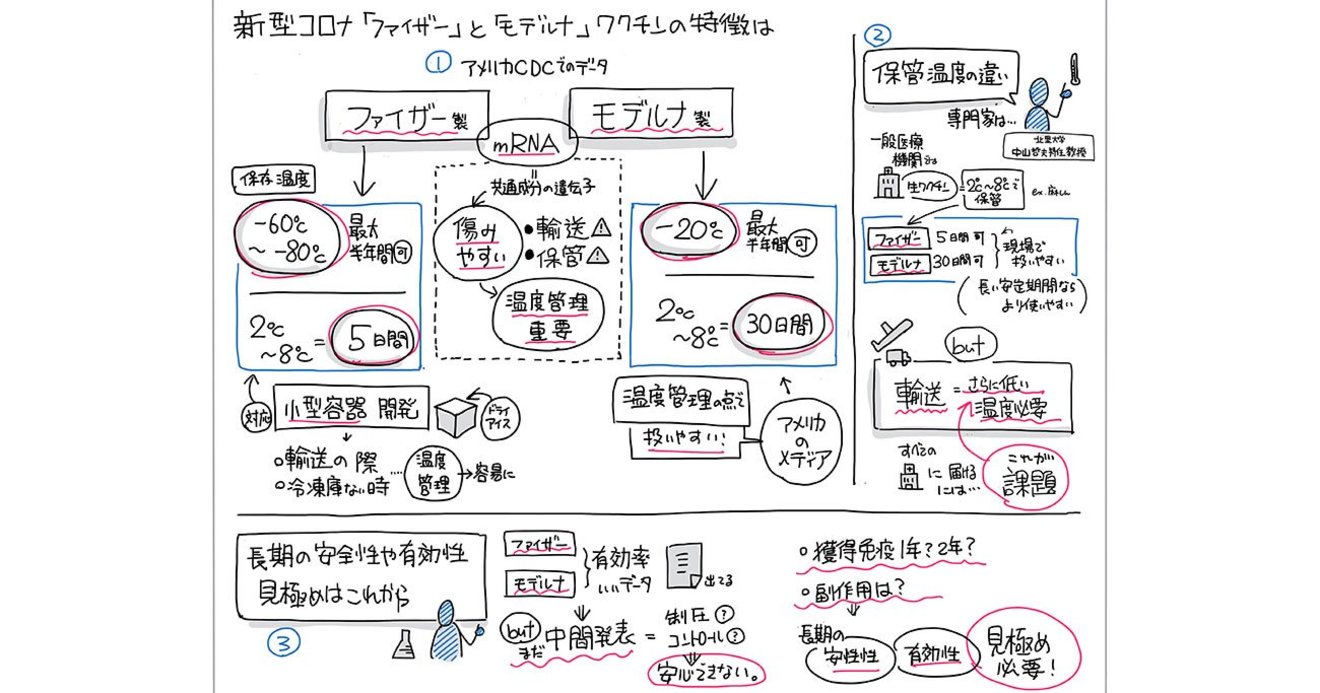 新型コロナ「ファイザー」と「モデルナ」ワクチンの特徴は
① アメリカCDCでのデータ
ファイザー製
モデルナ製
mRNA
保存温度
-60℃
～-80℃
最大
半年間可
2℃
～8℃=
5日間
共通成分の遺伝子
傷み
やすい
•輸送⚠
•保管⚠
温度管理
重要
-20℃
最大
半年間可
2℃
～8℃=
30日間
対応
小型容器 開発
ドライ
アイス
○輸送の際
○冷凍庫ない時
温度
管理
→容易に
温度管理の点で
扱いやすい!
アメリカ
の
メディア
②
保管温度の違い
専門家は…
北里大学
中山哲夫特任教授
一般医療
機関では
生ワクチン
=2℃～8℃で
保管
ex.麻しん
ファイザー 5日間可
モデルナ 30日間可
現場で
扱いやすい
(長い安定期間なら
より使いやすい)
but
輸送=さらに低い
温度必要
すべての
に届ける
には…
これが
課題
長期の安全性や有効性
見極めはこれから
③
ファイザー
モデルナ
有効率
いいデータ
出てる
but
まだ
中間発表=
制圧?
コントロール?
安心できない。
○獲得免疫1年?2年?
○副作用は?
長期の
安性性
有効性
見極め
必要!